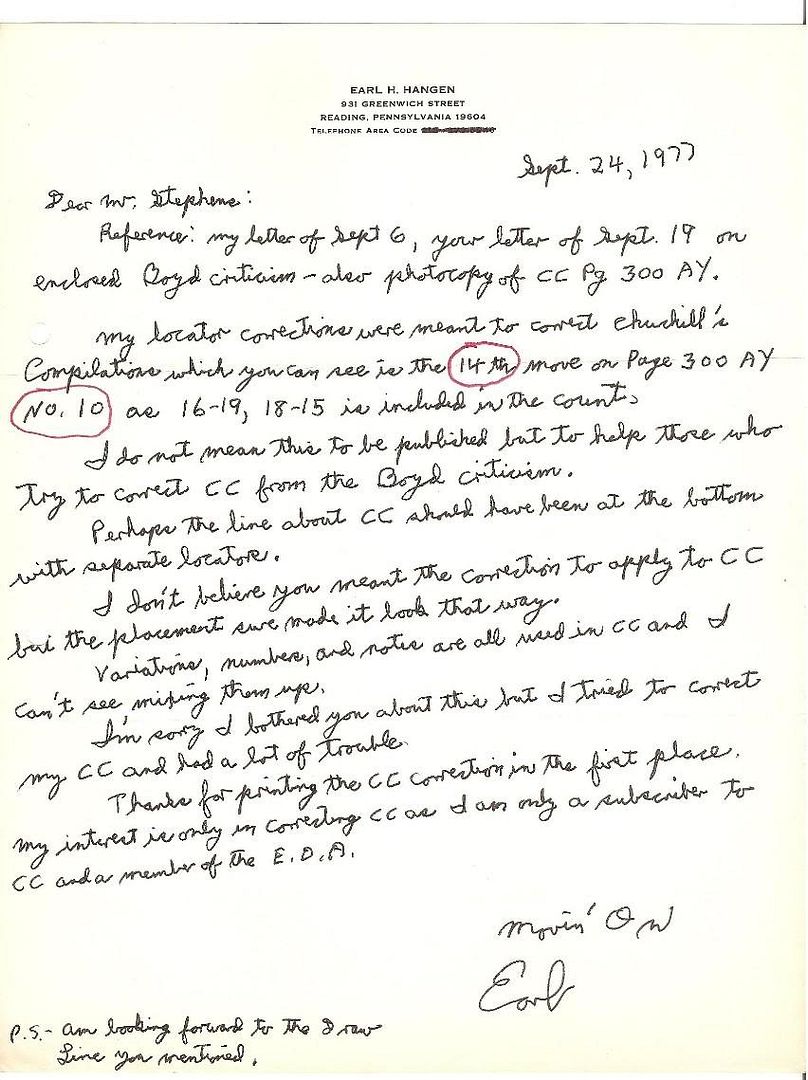 EARL H. HANGEN
931 GREENWICH STREET
READING, PENNSYLVANIA 19604
TELEPHONE AREA CODE
Sept. 24, 1977
Dear Mr. Stephens:
Reference: my letter of Sept 6, your letter of Sept. 19 on
enclosed Boyd criticism - also photocopy of CC Pg 300 AY.
My locator corrections were meant to correct Churchill's
Compilations which you can see is the 14th move on Page 300 AY
No. 10 as 16-19, 18-15 is included in the count.
I do not mean this to be published but to help those who
try to correct CC from the Boyd criticism.
Perhaps the line about CC should have been at the bottom
with separate locators.
I don't believe you meant the correction to apply to CC
but the placement sure made it look that way.
Variations, numbers, and notes are all used in CC and I
can't see mixing them up.
I'm sorry I bothered you about this but I tried to correct
my CC and had a lot of trouble.
Thanks for printing the CC correction in the first place.
My interest is only in correcting CC as I am only a subscriber to
CC and a member of the E.D.A.
Movin' On
Earl
P.S.- Am looking forward to the Draw
Line you mentioned.